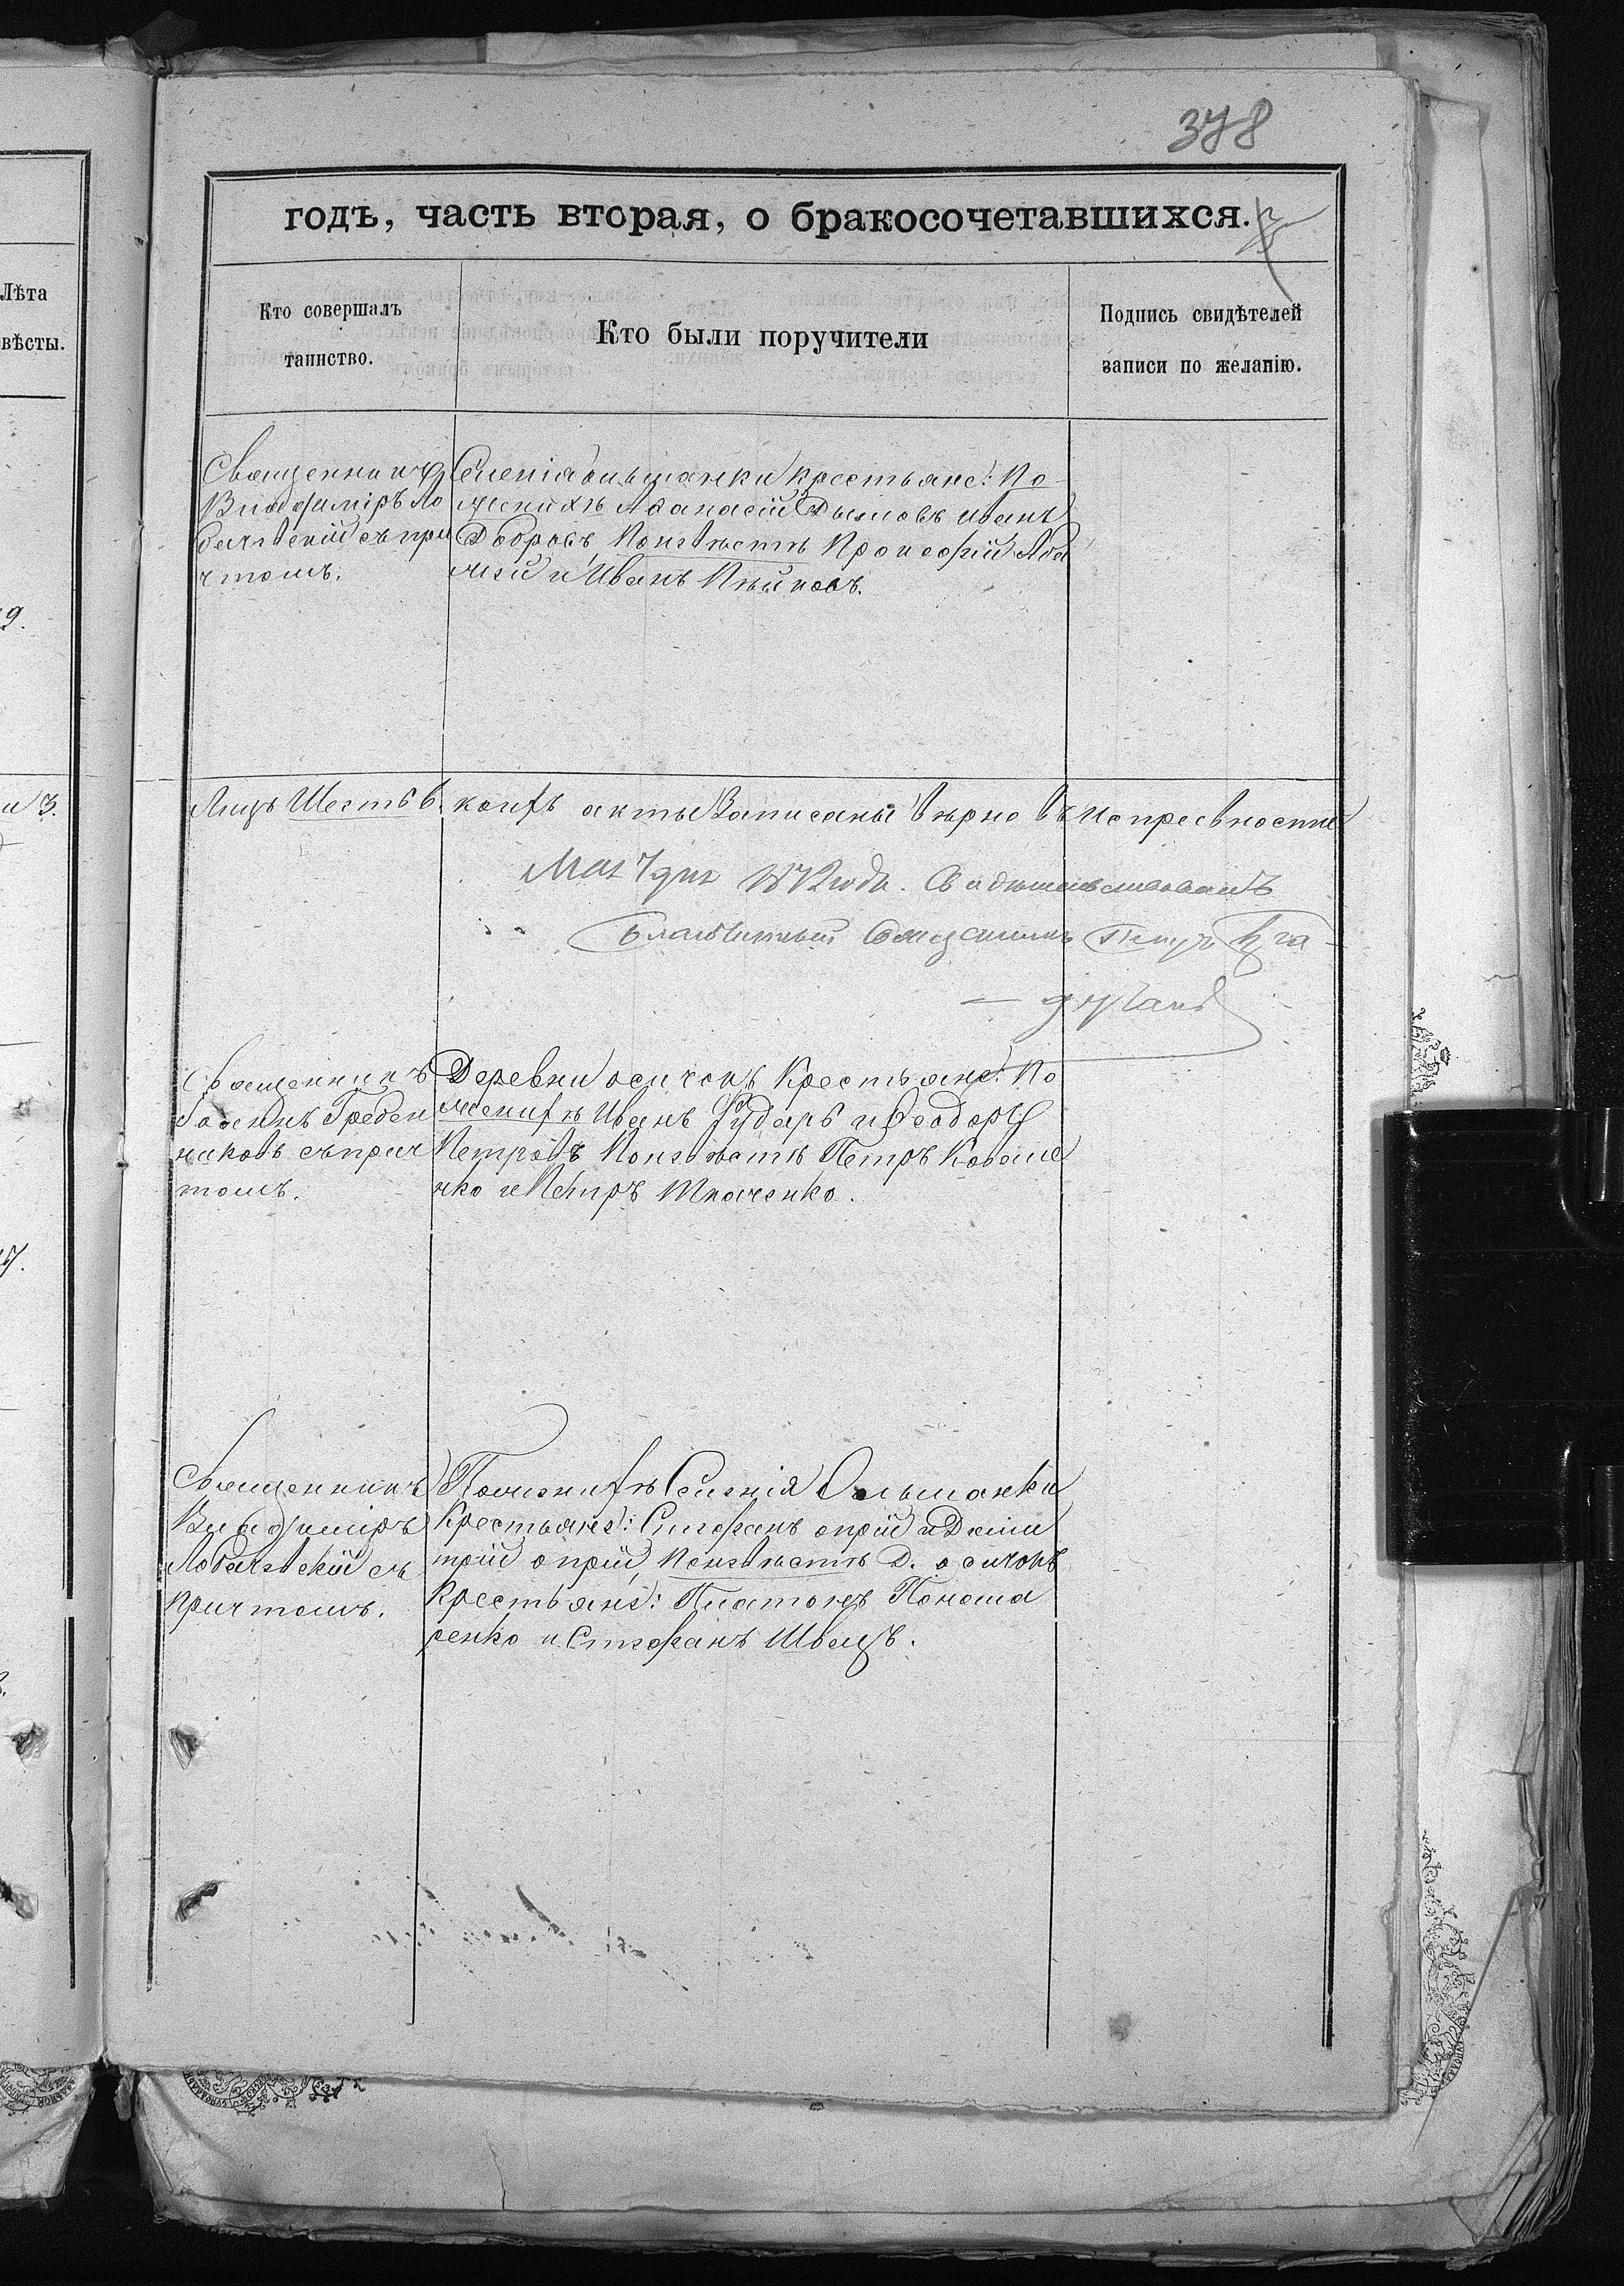 378
годъ, часть вторая, о бракосочетавшихся.
Лѣта
вѣсты.
Кто совершалъ
таинство.
Кто были поручители
Подпись свидѣтелей
записи по желанію.
Священникъ
Владиміръ Ло
бачевскій съ при
чтомъ.
Селенія Ольшанки крестьяне: По
женихѣ Аѳанасій Дымовъ Иванъ
Добровъ, По невѣстѣ Прокофій
и Иванъ
9.
и 3.
Лицъ Шесть 6. коихъ акты Записаны вѣрно въ исправности
Мая 7 дня 1872 года. Свидѣтельствовалъ
Благочинный Священникъ Петръ
Священникъ
Гребен
никовъ съ прич
томъ.
Деревни Осичокъ Крестьяне: По
женихѣ Иванъ Рударь и Ѳеодоръ
Петровъ По невѣстѣ Петръ Ковале
нко и Петръ Ткаченко.
Священникъ
Владиміръ
Лобачевскій съ
причтомъ.
По женихѣ Селенія Ольшанки
Крестьяне: Стефанъ Опрій и Дими
трій Опрій, По невѣстѣ Д. Осичокъ
Крестьяне: Платонъ Понома
ренко и Стефанъ Швецъ.